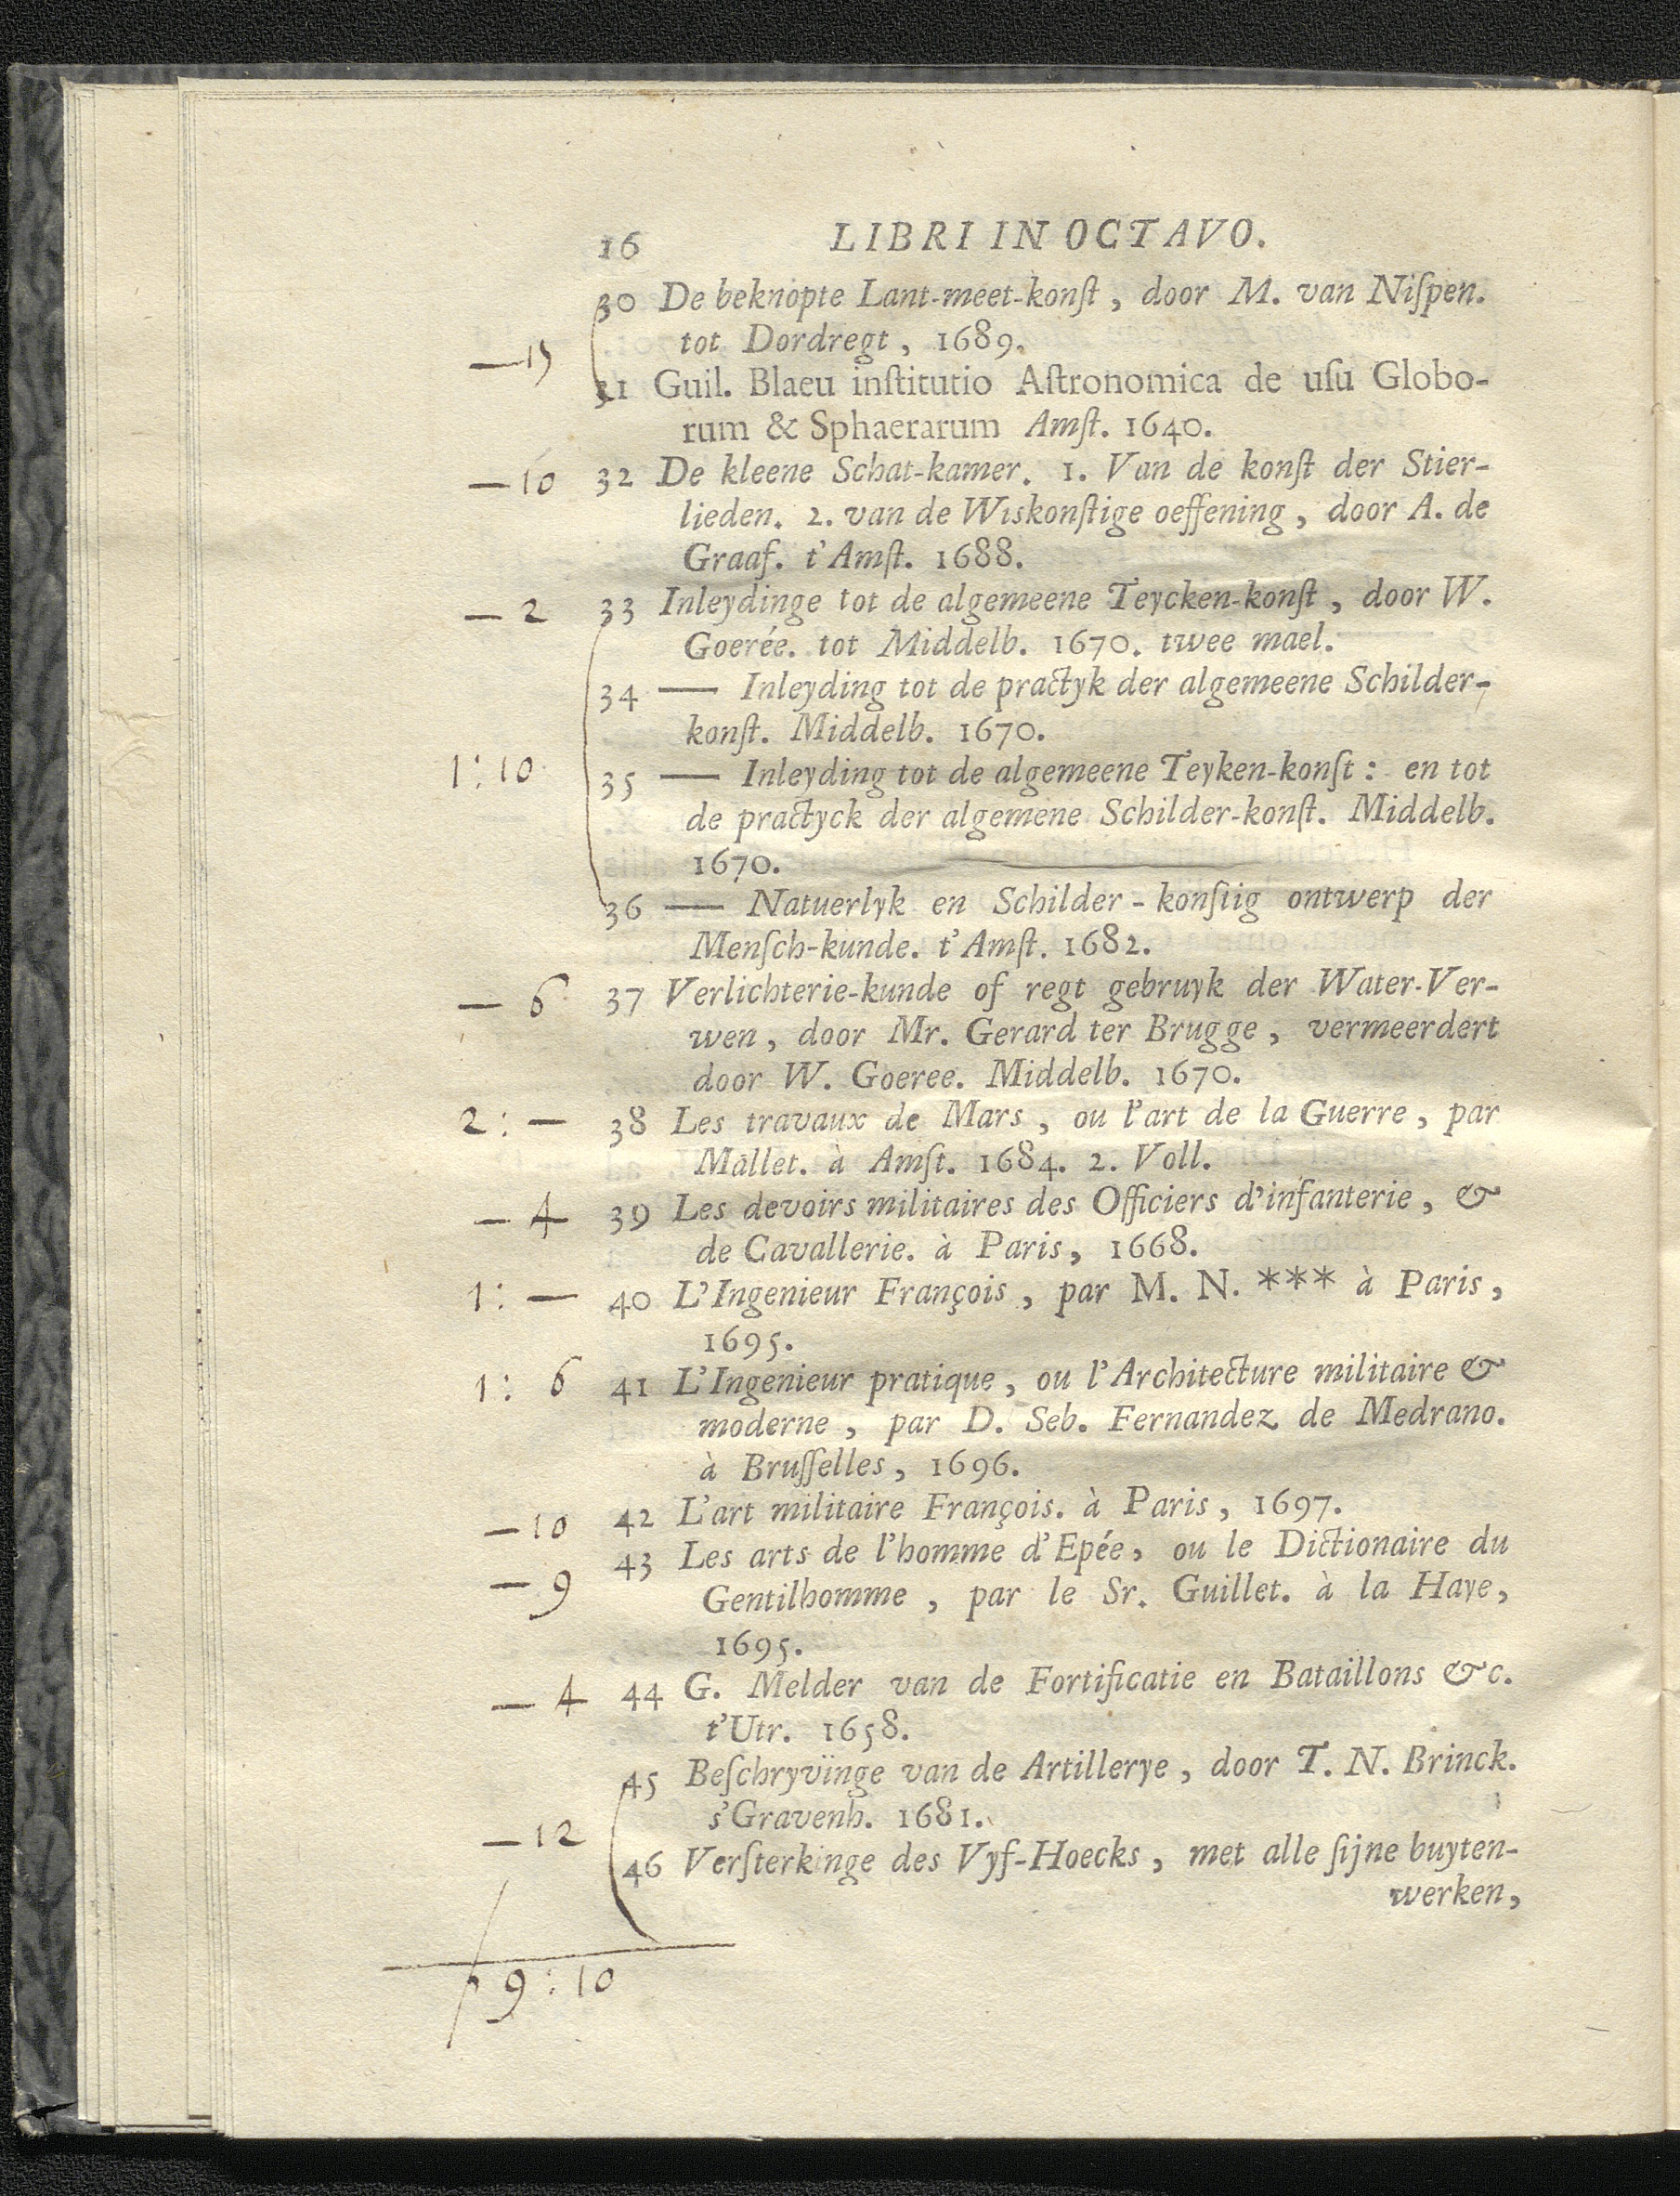 16 LIBRI IN OCTAVO.
30 De beknopte Lant-meet-konſt, door M. van Niſpen.
tot Dordregt, 1689.
31 Guil. Blaeu inſtitutio Aſtronomica de uſu Globo-
rum & Sphaerarum Amſt. 1640.
— 10 32 De kleene Schat-kamer. 1. Van de konſt der Stier-
lieden. 2. van de Wiskonſtige oeffening, door A. de
Graaf. t'Amſt. 1688.
— 2 33 Inleydinge tot de algemeene Teycken-konſt, door W.
Goerée. tot Middelb. 1670. twee mael.
34 — Inleyding tot de practyk der algemeene Schilder-
konſt. Middelb. 1670.
1:10 35 — Inleyding tot de algemeene Teyken-konſt: en tot
de practyck der algemene Schilder-konſt. Middelb.
1670.
36 — Natuerlyk en Schilder-konſtig ontwerp der
Menſch-kunde. t'Amſt. 1682.
— 6 37 Verlichterie-kunde of regt gebruyk der Water-Ver-
wen, door Mr. Gerard ter Brugge, vermeerdert
door W. Goeree. Middelb. 1670.
2:— 38 Les travaux de Mars, ou l'art de la Guerre, par
Mallet. à Amſt. 1684. 2. Voll.
— 4 39 Les devoirs militaires des Officiers d'infanterie, &
de Cavallerie. à Paris, 1668.
1:— 40 L'Ingenieur François, par M. N. *** à Paris,
1695.
1: 6 41 L'Ingenieur pratique, ou l'Architecture militaire &
moderne, par D. Seb. Fernandez de Medrano.
à Bruſſelles, 1696.
— 10 42 L'art militaire François. à Paris, 1697.
— 9 43 Les arts de l'homme d'Epée, ou le Dictionaire du
Gentilhomme, par le Sr. Guillet. à la Haye,
1695.
— 4 44 G. Melder van de Fortificatie en Bataillons &c.
t'Utr. 1658.
45 Beſchryvinge van de Artillerye, door T. N. Brinck.
s'Gravenh. 1681.
— 12
46 Verſterkinge des Vyf-Hoecks, met alle ſijne buyten-
werken,
9:10